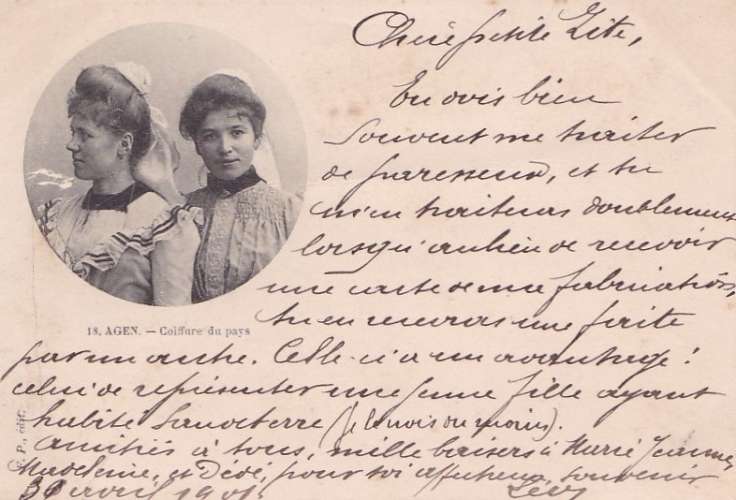 Chère petite Zite,
Tu dois bien
souvent me traiter
de paresseux, et tu
m'en traiteras doublement
lorsqu'au lieu de recevoir
une carte de ma fabrication,
tu en recevras une faite
par un autre. Celle-ci a un avantage :
celui de représenter une jeune fille ayant
habité Sauveterre (je le crois du moins).
Amitiés à tous, mille baisers à Marie Jeanne,
Madeleine, et Dédé, pour toi affectueux souvenir
30 avril 1901
18. AGEN. — Coiffure du pays
P., édit.